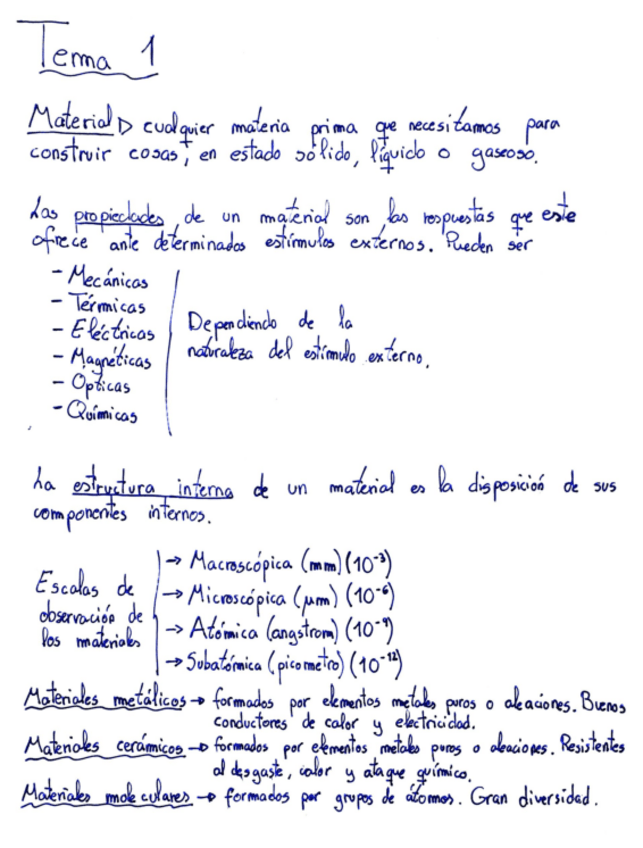 Tema 1
Material ▷ cualquier materia prima que necesitamos para
construir cosas, en estado sólido, líquido o gaseoso.
Las propiedades de un material son las respuestas que este
ofrece ante determinados estímulos externos. Pueden ser
- Mecánicas
- Térmicas
- Eléctricas
- Magnéticas
- Opticas
- Químicas
Dependiendo de la
naturaleza del estímulo externo.
La estructura interna de un material es la disposición de sus
componentes internos.
Escalas de
observación de
los materiales
→ Macroscópica (mm) (10⁻³)
→ Microscópica (μm) (10⁻⁶)
→ Atómica (angstrom) (10⁻⁹)
→ Subatómica (picometro) (10⁻¹²)
Materiales metálicos → formados por elementos metales puros o aleaciones. Buenos
conductores de calor y electricidad.
Materiales cerámicos → formados por elementos metales puros o aleaciones. Resistentes
al desgaste, calor y ataque químico.
Materiales moleculares → formados por grupos de átomos. Gran diversidad.